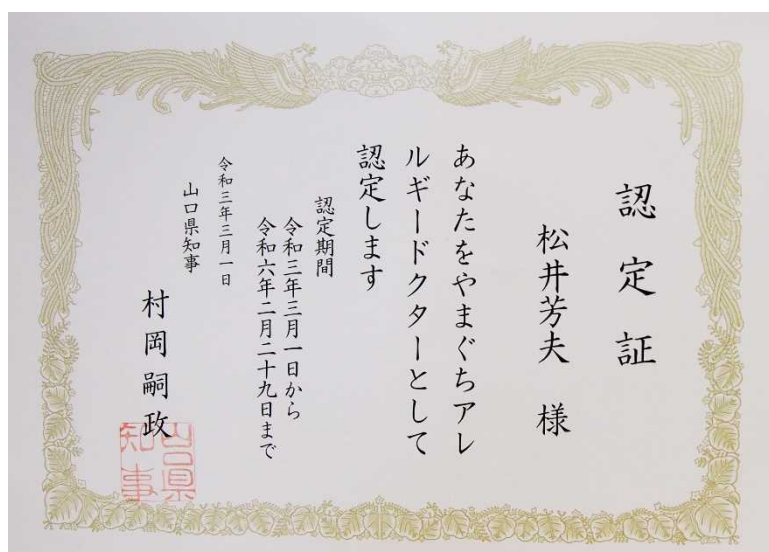 認定証
松井芳夫 様
あなたをやまぐちアレ
ルギードクターとして
認定します
認定期間
令和三年三月一日から
令和六年二月二十九日まで
令和三年三月一日
山口県知事
村岡嗣政
山口県
知事